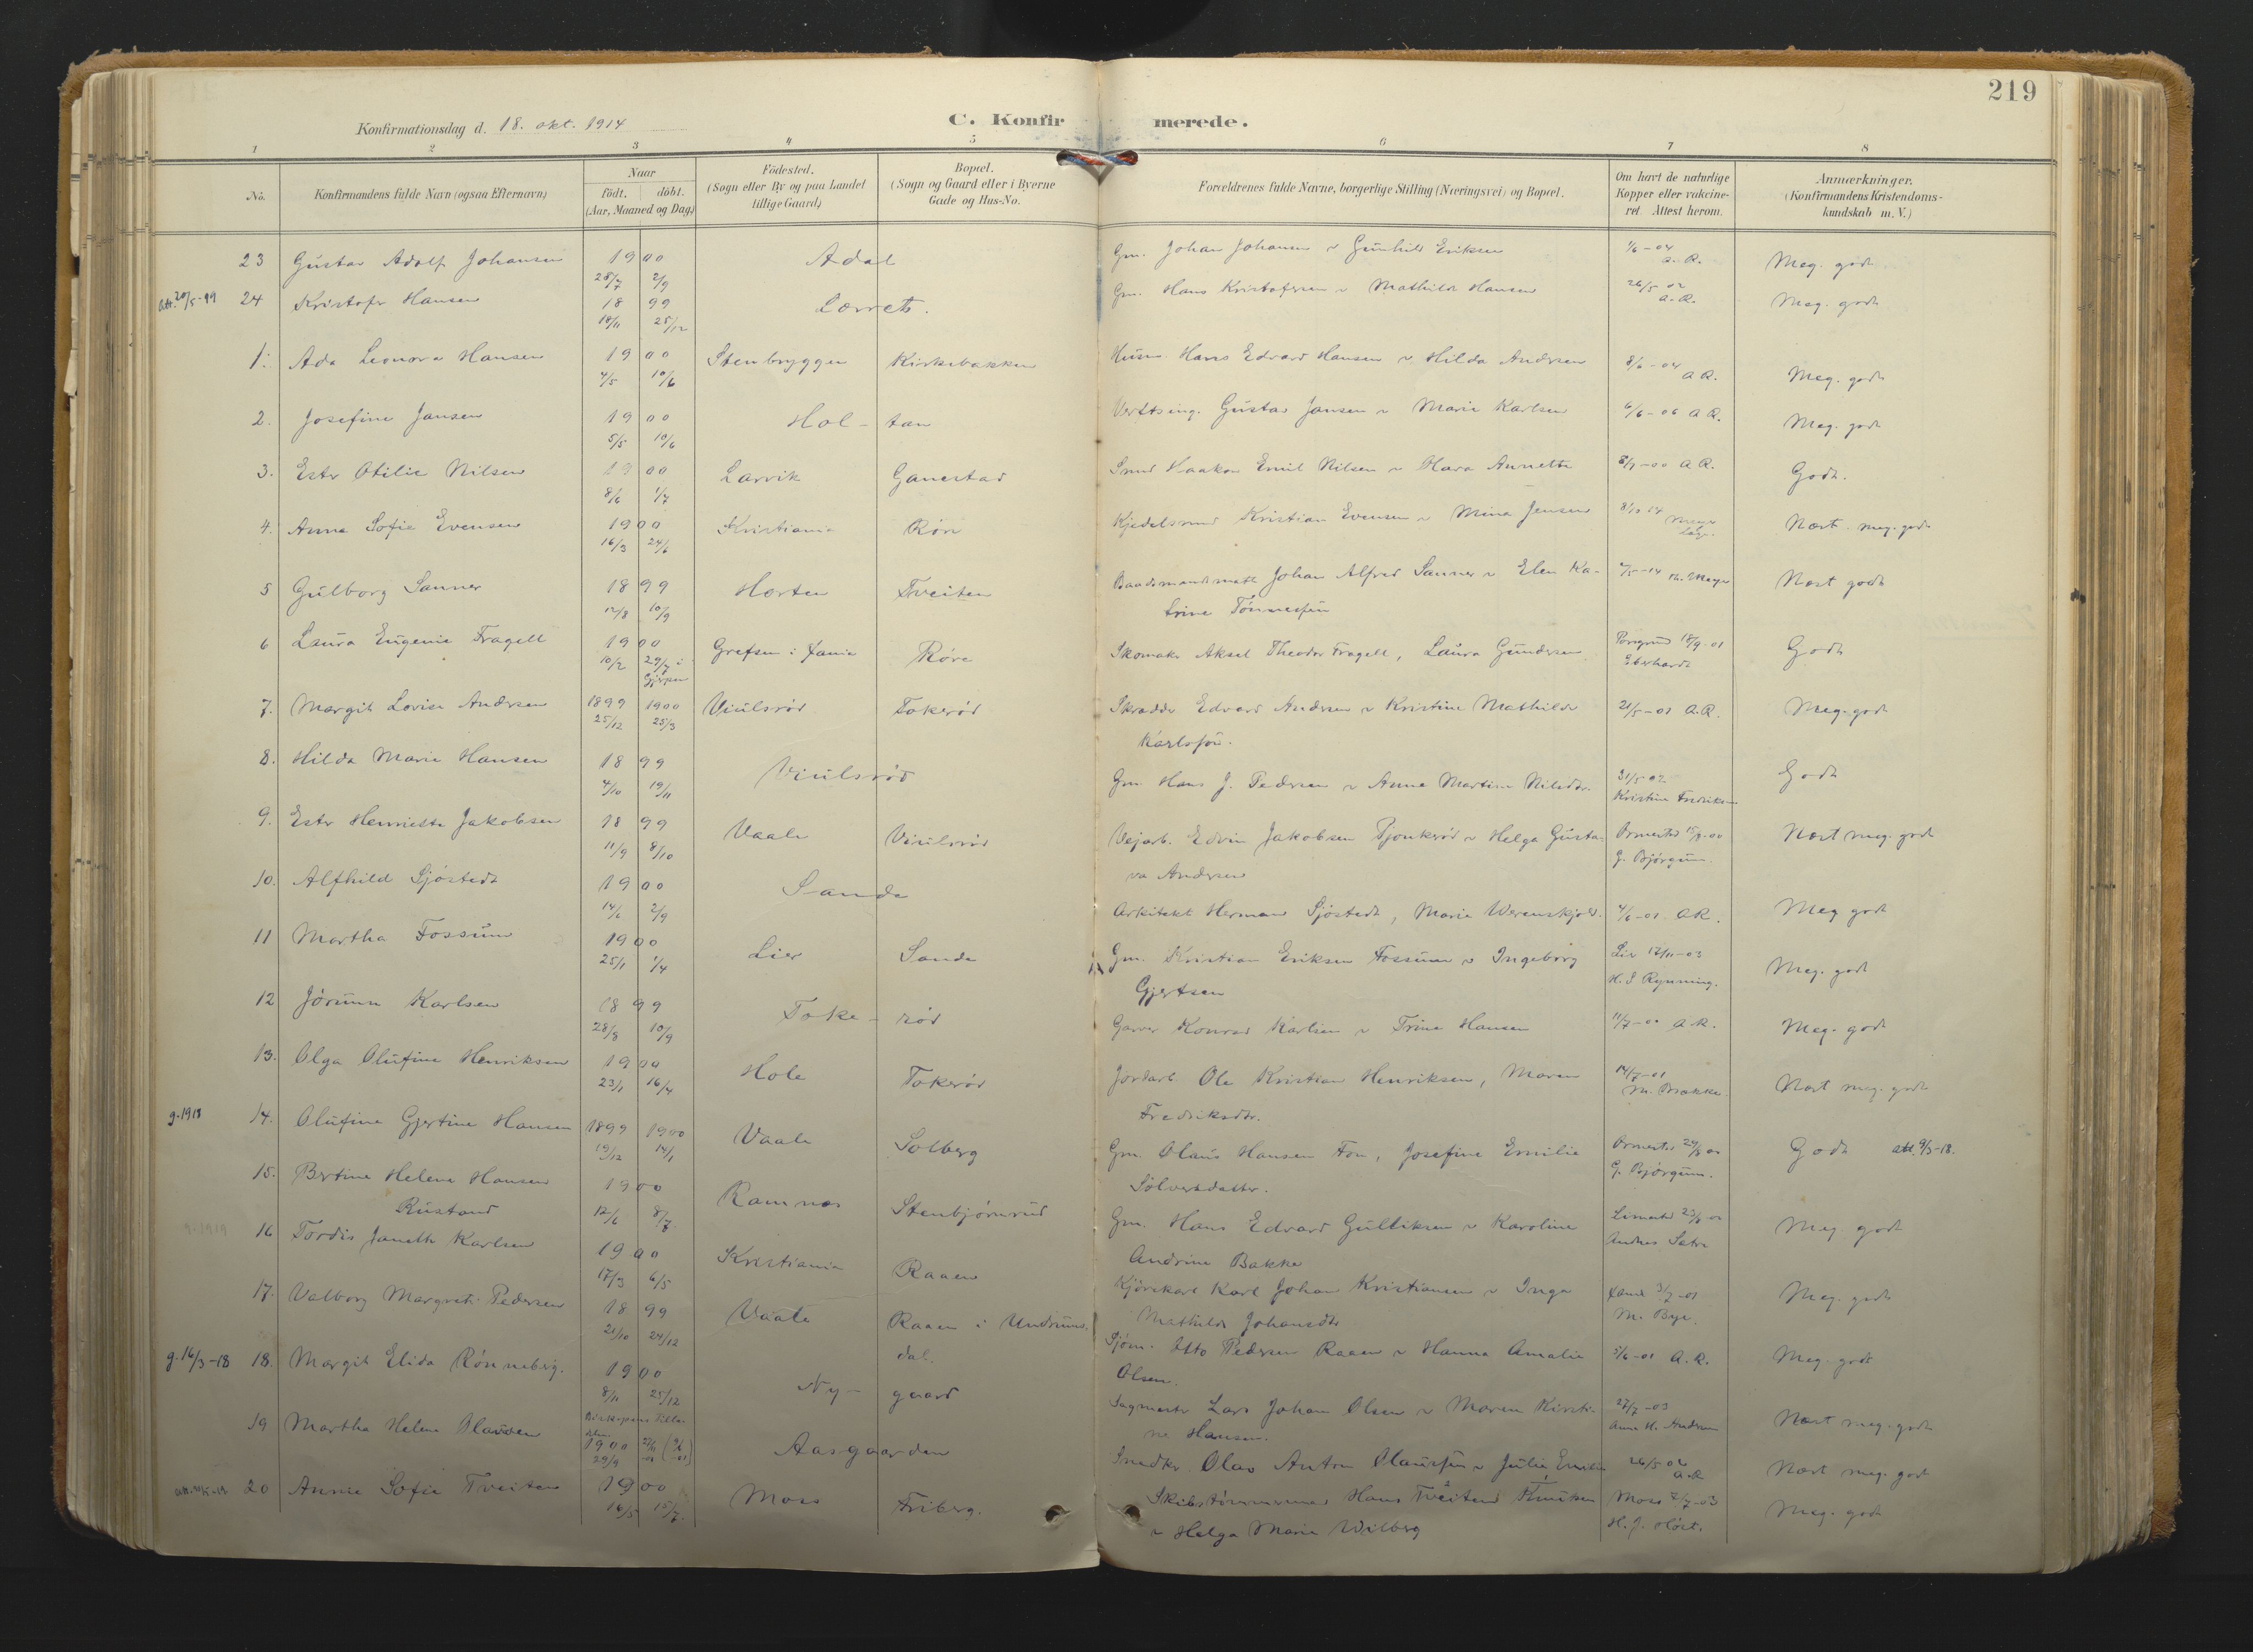 219
Konfirmationsdag d. 18. okt. 1914
C. Konfirmerede.
1 2 3 4 5 6 7 8
No.
Konfirmandens fulde Navn (ogsaa Efternavn)
Naar
født. døbt.
(Aar, Maaned og Dag.)
Fødested.
(Sogn eller By og paa Landet
tillige Gaard)
Bopæl.
(Sogn og Gaard eller i Byerne
Gade og Hus-No.
Forældrenes fulde Navne, borgerlige Stilling (Næringsvei) og Bopæl.
Om havt de naturlige
Kopper eller vakcine-
ret. Attest herom.
Anmærkninger.
(Konfirmandens Kristendoms-
kundskab m. V.)
23 Gustav Adolf Johansen 1900 28/7 2/9 Adal Gm. Johan Johansen & Gunhild Eriksen 1/6-04 A.R. Meg. godt
24 Kristofer Hansen 1899 18/11 25/12 Gm. Hans Kristofersen & Mathilde Hansen 26/5 02 A.R. Meg. godt
1. Ada Leonora Hansen 1900 4/5 10/6 Stenbryggen Kirkebakken Hans Edvard Hansen & Hilda Andersen 8/6-04 A R. Meg. godt
2. Josefine Jansen 1900 5/5 10/6 Hol-tan Gustav Jansen & Marie Karlsen 6/6-06 A R. Meg. godt
3. Ester Otilie Nilsen 1900 8/6 1/7 Larvik Ganestad Smed Haakon Emil Nilsen & Annette A R. Godt.
4. Anna Sofie Evensen 1900 16/3 24/6 Kristiania Røre Kjedelsmed Kristian Evensen & Mina Jensen 8/10 14 Næst meg. godt
5 Gulborg Sanner 1899 12/8 10/9 Horten Tveiten Baadsmandsmatt Johan Alfred Sanner & Elen Ka-
trine Tønnesen Næst godt
6 Laura Eugenie Fragell 1900 10/2 29/7 i Gjerpen Grefsen Røre Skomaker Aksel Theodor Fragell, Laura Gundersen Porsgrund 18/9-01
Eberhardt Godt
7. Margit Lovise Andersen 1899 25/12 1900 25/3 Viulsrød Tokerød Skrædder Edvard Andersen & Kristine Mathilde
Karlsen. 21/5-01 A.R. Meg. godt
8. Hilda Marie Hansen 1899 4/10 19/11 Viulsrød Gm. Hans J. Pedersen & Anne Martine Nilsdtr. 31/5 02
Kristine Fredriksen Godt
9. Ester Henriette Jakobsen 1899 11/9 8/10 Vaale Viulsrød Vejarb. Edvin Jakobsen & Helga Gusta-
va Andersen G. Bjørgum. Næst meg. godt
10. Alfhild Sjøstedt 1900 14/6 2/9 Sande Arkitekt Herman Sjøstedt, Marie Werenskjold. 4/6-01 A R. Meg godt
11 Martha Fossum 1900 25/1 1/4 Lier Sande Gm. Kristian Eriksen Fossum & Ingeborg
Gjertsen Lier 12/11-03
Rynning. Meg. godt
12 Jørunn Karlsen 1899 28/8 10/9 Toke-rød Garver Konrad Karlsen & Trine Hansen A.R. Meg. godt
13. Olga Olufine Henriksen 1900 23/1 16/4 Hole Tokerød Jordarb. Ole Kristian Henriksen, Maren
Fredriksdtr. M. Bakke Næst meg. godt
g. 1918 14. Olufine Gjertine Hansen 1899 19/12 1900 14/1 Vaale Solberg Gm. Olaus Hansen Fon, Josefine Emilie
Sølvesdatter. G. Bjørgum. Godt att. 9/3-18.
15. Bertine Helene Hansen
Rustand 1900 12/6 8/7 Ramnæs Stenbjørnrud Gm. Hans Edvard Gulliksen & Karoline
Andrine Bakke Meg. godt
g. 1919 16 Tordis Janette Karlsen 1900 17/3 6/5 Kristiania Raaen Kjørekarl Karl Johan Kristiansen & Inga
Mathilde Johansdtr. 3/7-01
M. Bye. Meg. godt
17. Valborg Margrete Pedersen 1899 21/10 24/12 Vaale Raaen i Undrums-
dal. Sjøm. Otto Pedersen Raaen & Hanna Amalie
Olsen. 5/6-01 A.R. Meg. godt
g. 16/3-18 18. Margit Elida Rønneberg. 1900 8/11 25/12 Ny-gaard Sagmester Lars Johan Olsen & Maren Kirsti-
ne Hansen. 27/7-03
Anne H. Andersen Næst meg. godt
19 Martha Helene Olaussen 1900 29/9 Aasgaarden Snedker Olav Anton Olaussen & Julie Emilie 26/5 02 A.R. Næst meg. godt
20 Annie Sofie Tveiten 1900 16/5 15/7. Moss Friberg. Skibstømmermand Hans Tveiten Knutsen
& Helga Marie Wilberg Moss 2/7-03
H. J. Høst. Meg. godt